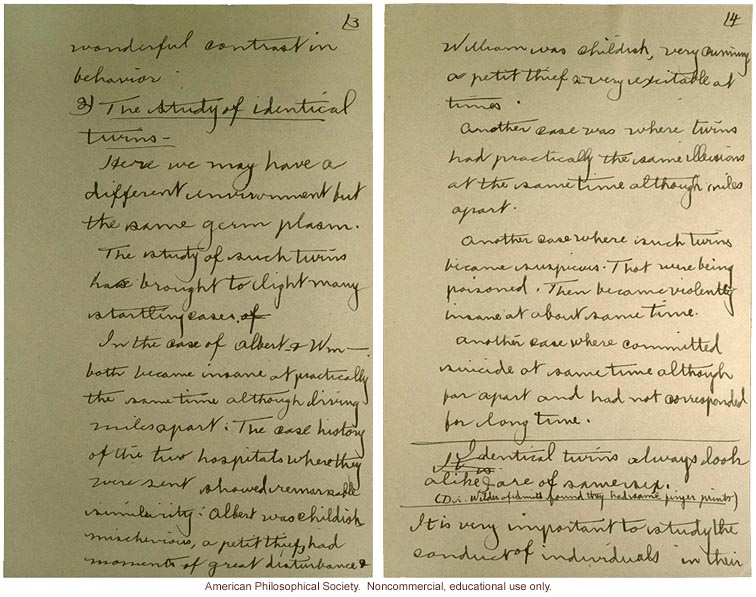 13
wonderful contrast in
behavior.
2) The study of identical
twins -
Here we may have a
different environment but
the same germ plasm.
The study of such twins
has brought to light many
startling cases. of
In the case of Albert & Wm —
both became insane at practically
the same time although living
miles apart. The case history
of the two hospitals where they
were sent showed remarkable
similarity: Albert was childish
mischievious, a petit thief, had
moments of great disturbance &
14
William was childish, very cunning
a petit thief & very excitable at
times.
Another case was where twins
had practically the same illusions
at the same time although miles
apart.
Another case where such twins
became suspicious. That were being
poisoned. Then became violently
insane at about same time.
Another case where committed
suicide at same time although
far apart and had not corresponded
for long time.
Identical twins always look
alike & are of same sex.
(Dr. Wilder found they had same finger prints)
It is very important to study the
conduct of individuals in their
American Philosophical Society. Noncommercial, educational use only.